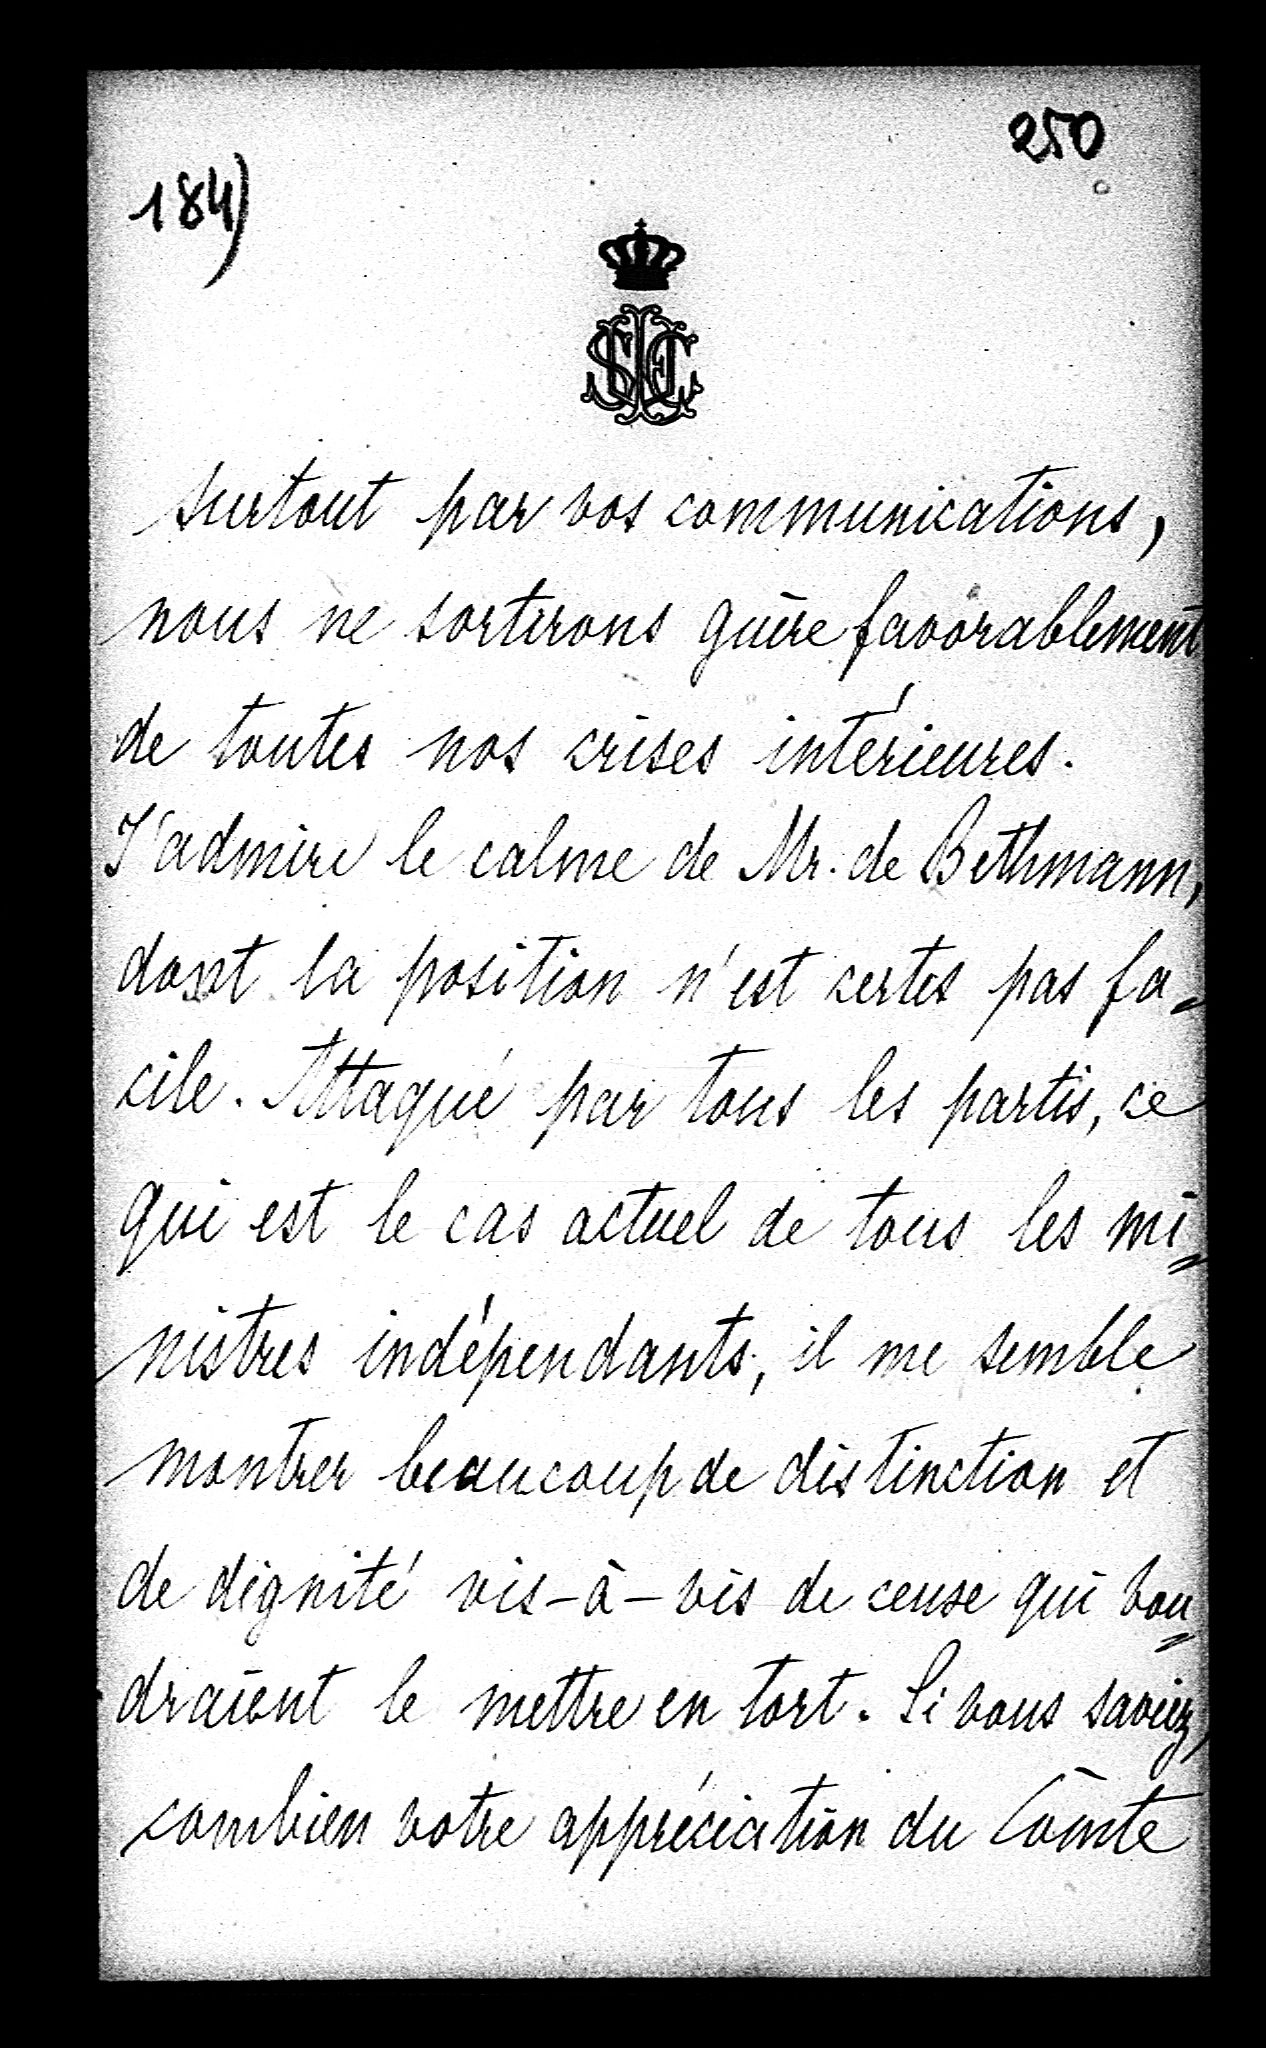 250
184)
surtout par vos communications,
nous ne sortirons guère favorablement
de toutes nos crises intérieures.
J'admire le calme de Mr. de Bethmann,
dont la position n'est certes pas fa-
cile. Attaqué par tous les partis, ce
qui est le cas actuel de tous les mi-
nistres indépendants, il me semble
montrer beaucoup de distinction et
de dignité vis-à-vis de ceuse qui vou-
draient le mettre en tort. Si vous saviez,
combien votre appréciation du Comte